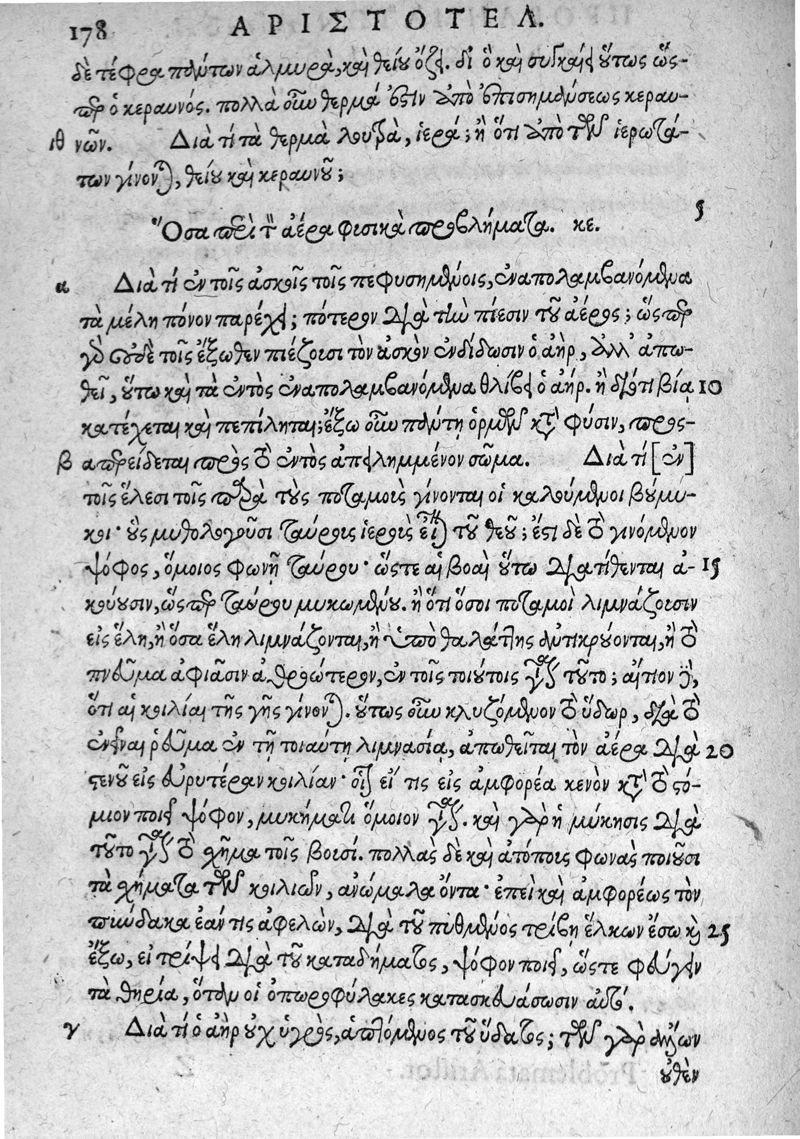 178 ΑΡΙΣΤΟΤΕΛ.
δὲ τέφρα πλύτων ἁλμυρὰ, καὶ θείου ὄζει. δι' ὃ καὶ συγκαίει οὕτως ὥσ-
περ ὁ κεραυνός. πολλὰ οὖν θερμά ἐστιν ἀπὸ ἐπισημάνσεως κεραυ-
ιθ νῶν. Διὰ τί τὰ θερμὰ λουτρὰ, ἱερά; ἢ ὅτι ἀπὸ τῶν ἱερωτά-
των γίνονται, θείου καὶ κεραυνοῦ;
Ὅσα περὶ τὸν ἀέρα φισικὰ προβλήματα. κε. 5
α Διὰ τί ἐν τοῖς ἀσκοῖς τοῖς πεφυσημένοις, ἐναπολαμβανόμενα
τὰ μέλη πόνον παρέχει; πότερον διὰ τὴν πίεσιν τοῦ ἀέρος; ὥσπερ
γὰρ οὐδὲ τοῖς ἔξωθεν πιέζουσι τὸν ἀσκὸν ἐνδίδωσιν ὁ ἀὴρ, ἀλλ' ἀπω-
θεῖ, οὕτω καὶ τὰ ἐντὸς ἐναπολαμβανόμενα θλίβει ὁ ἀήρ. ἢ διότι βίᾳ 10
κατέχεται καὶ πεπίληται; ἔξω οὖν πάντῃ ὁρμῶν κατὰ φύσιν, προσ-
β απερείδεται πρὸς τὸ ἐντὸς ἀπειλημμένον σῶμα. Διὰ τί [ἐν]
τοῖς ἕλεσι τοῖς παρὰ τοὺς ποταμοὺς γίνονται οἱ καλούμενοι βούμυ-
κοι· οὓς μυθολογοῦσι ταύρους ἱεροὺς εἶναι τοῦ θεοῦ; ἔστι δὲ τὸ γινόμενον
ψόφος, ὅμοιος φωνῇ ταύρου· ὥστε αἱ βοαὶ οὕτω διατίθενται ἀ- 15
κούουσιν, ὥσπερ ταύρου μυκωμένου. ἢ ὅτι ὅσοι ποταμοὶ λιμνάζουσιν
εἰς ἕλη, ἢ ὅσα ἕλη λιμνάζονται, ἢ ὑπὸ θαλάττης ἀντικρούονται, ἢ τὸ
πνεῦμα ἀφιᾶσιν ἀθροώτερον, ἐν τοῖς τοιούτοις γίνεται τοῦτο; αἴτιον δέ,
ὅτι αἱ κοιλίαι τῆς γῆς γίνονται. οὕτως οὖν κλυζόμενον τὸ ὕδωρ, διὰ τὸ
ἐνεῖναι ῥεῦμα ἐν τῇ τοιαύτῃ λιμνασίᾳ, ἀπωθεῖται τὸν ἀέρα διὰ 20
στενοῦ εἰς εὐρυτέραν κοιλίαν· οἷον εἴ τις εἰς ἀμφορέα κενὸν κατὰ τὸ στό-
μιον ποιεῖ ψόφον, μυκήματι ὅμοιον γίνεται. καὶ γὰρ ἡ μύκησις διὰ
τοῦτο γίνεται τὸ σχῆμα τοῖς βουσί. πολλὰς δὲ καὶ ἀτόπους φωνὰς ποιοῦσι
τὰ σχήματα τῶν κοιλιῶν, ἀνώμαλα ὄντα· ἐπεὶ καὶ ἀμφορέως τὸν
πύνδακα ἐάν τις ἀφελὼν, διὰ τοῦ πυθμένος τρίβῃ ἕλκων ἔσω καὶ 25
ἔξω, εἰ τρίψει διὰ τοῦ καταδήματος, ψόφον ποιεῖ, ὥστε φεύγειν
τὰ θηρία, ὅταν οἱ ὀπωροφύλακες κατασκευάσωσιν αὐτό.
γ Διὰ τί ὁ ἀὴρ οὐχ ὑγρὸς, ἁπτόμενος τοῦ ὕδατος; τῶν γὰρ ἄλλων
οὐθὲν